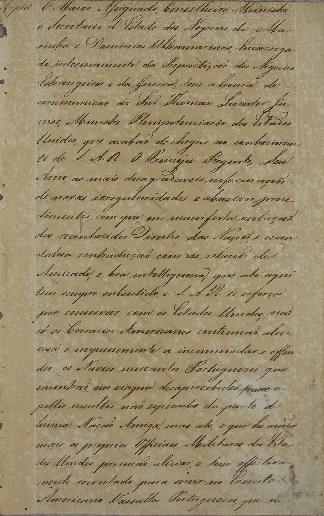 Copia O Abaixo Assignado, Conselheiro, Ministro
e Secretario d'Estado dos Negocios da Ma-
rinha e Dominios Ultramarinos, Encarrega-
do interinamente da Repartição dos Negocios
Estrangeiros e da Guerra, tem a honra de
communicar ao Snr Thomas Sumter Ju-
nior, Ministro Plenipotenciario dos Estados
Unidos, que acabão de chegar ao conhecimen-
to de S. A. R. O Principe Regente, Seu
Amo as mais desagradaveis informações
de novas irregularidades e abusivos proce-
dimentos, com que em manifesta violação
dos reconhecidos Direitos das Nações, e escan-
daloza contradicção com as relações de
Amizade e boa intelligencia, que até aqui
tem sempre subsistido e S. A. R. se esforça
por conservar com os Estados Unidos, não
só os Corsarios Americanos continuão
e impunemente a incommodar e offen-
der os Navios mercantes Portuguezes, que
em viagem desapercebidos para a-
quelles insultos não esperados da parte d'
huma Nação Amiga, mas até, o que he ainda
mais os proprios Officiaes Militares dos Esta-
dos Unidos aliciar, e tem effectiva-
mente recrutado para servir no Exercito
Americano Vassallos Portuguezes, que